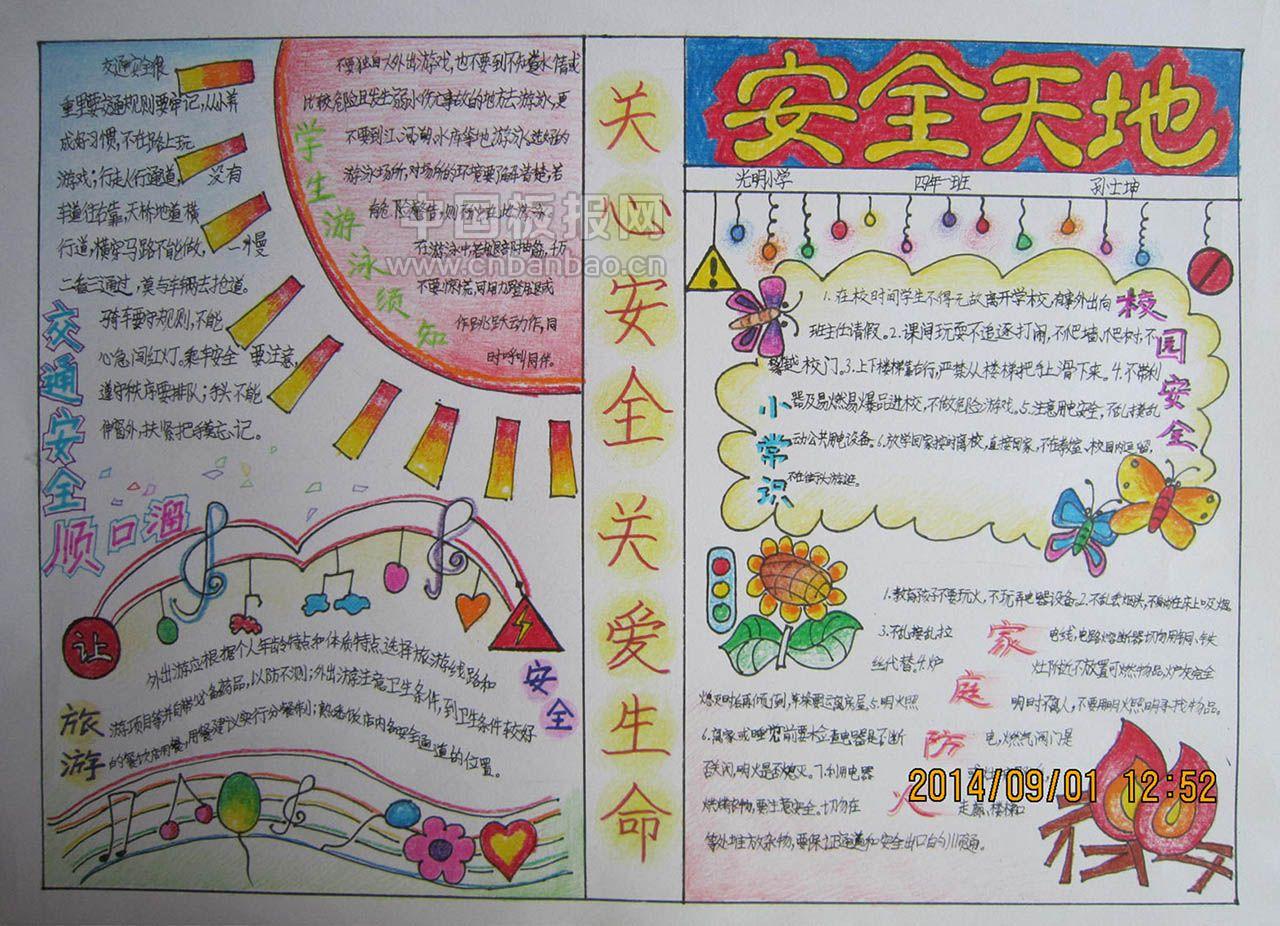 安全天地
光明小学 四年一班 孙士坤
关心安全关爱生命
交通安全顺口溜
交通安全很
重要交通规则要牢记,从小养
成好习惯,不在路上玩
游戏;行走人行通道, 没有
车道往右靠,天桥地道横
行道,横穿马路不能做, 一慢
二看三通过,莫与车辆去抢道。
骑车要守规则,不能
心急闯红灯。乘车安全 要注意,
遵守秩序要排队;手头不能
伸窗外,扶紧把手莫忘记。
学生游泳须知
不要独自人外出游戏,也不要到不知道水情或
比较危险且发生溺水伤亡事故的地方去游泳,更
不要到江、河、湖、水库等地游泳,选好的
游泳场所,对场所的环境要了解清楚,若
有危险警告,则不能在此游泳
在游泳中若腿部抽筋,切
不要惊慌,可用力蹬腿或
作跳跃动作,同
时呼叫同伴。
校园安全
小常识
1.在校时间学生不得无故离开学校,有事外出向
班主任请假。2.课间玩耍不追逐打闹,不爬墙、爬树,不
攀越校门。3.上下楼梯靠右行,严禁从楼梯把手上滑下来。4.不带利
器及易燃易爆品进校,不做危险游戏。5.注意用电安全,不乱摸乱
动公共用电设备。6.放学回家按时离校,直接回家,不在教室、校园内逗留,
不在街头游逛。
让
旅游
安全
外出游应根据个人年龄特点和体质特点,选择旅游线路和
游项目等并自带必备药品,以防不测;外出游注意卫生条件,到卫生条件较好
的餐饮店用餐,用餐建议实行分餐制;熟悉饭店内各安全通道的位置。
家庭防火
1.教育孩子不要玩火,不玩弄电器设备。2.不乱丢烟头,不躺在床上吸烟
3.不乱接乱拉 电线,电路熔断器切勿用铜、铁
丝代替。4.炉 灶附近不放置可燃物品,炉灰完全
熄灭时再倾倒,草垛要远离房屋。5.明火照 明时不离人,不要用明火照明寻找物品。
6.离家或睡觉前要检查电器是否断 电,燃气阀门是
否关闭,明火是否熄灭。7.利用电器
烘烤衣物,要注意安全。切勿在 走廊、楼梯口
等处堆放杂物,要保证通道和安全出口的畅通。
中国板报网
www.cnbanbao.cn
2014/09/01 12:52